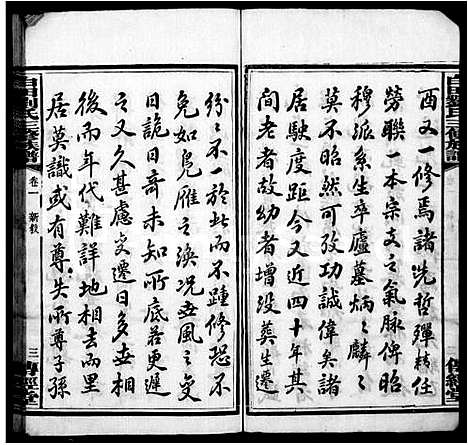 白田劉氏三修族譜
酉又一修焉諸先哲殫精任
勞聯一本宗支之氣脉俾昭
穆派系生卒廬墓炳炳麟麟
莫不昭然可攷功誠偉矣諸
居駛度距今又近四十年其
間老者故幼者增沒葬生遷
傳經堂
紛紛不一於此而不踵修恐不
免如鳧雁之渙況世風之變
日詭日奇未知所底莊更遲
之又久甚慮變遷日多世而
後而年代難詳地相去而里
居莫識或有尊失所尊子孫
白田劉氏三修族譜
卷一
新敘
三
傳經堂